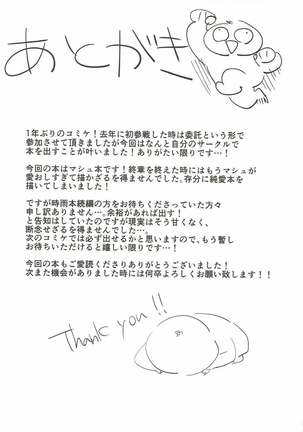 あとがき
1年ぶりのコミケ！去年に初参戦した時は委託という形で
参加させて頂きましたが今回はなんと自分のサークルで
本を出すことが叶いました！ありがたい限りです…！
今回の本はマシュ本です！終章を終えた時にはもうマシュが
愛おしすぎて描かざるを得ませんでした。存分に純愛本を
描いてしまいました！
ですが時雨本続編の方をお待ちくださっていた方々
申し訳ありません…余裕があれば出す！
と告知はしていたのですが現実はそう甘くなく、
断念せざるを得ませんでした…。
次のコミケでは必ず出せるかと思いますので、もう暫し
お待ちいただけると嬉しい限りです…！
今回の本もご愛読くださりありがとうございました！
次また機会がありました時には何卒よろしくお願い致します！！
Thank you!!